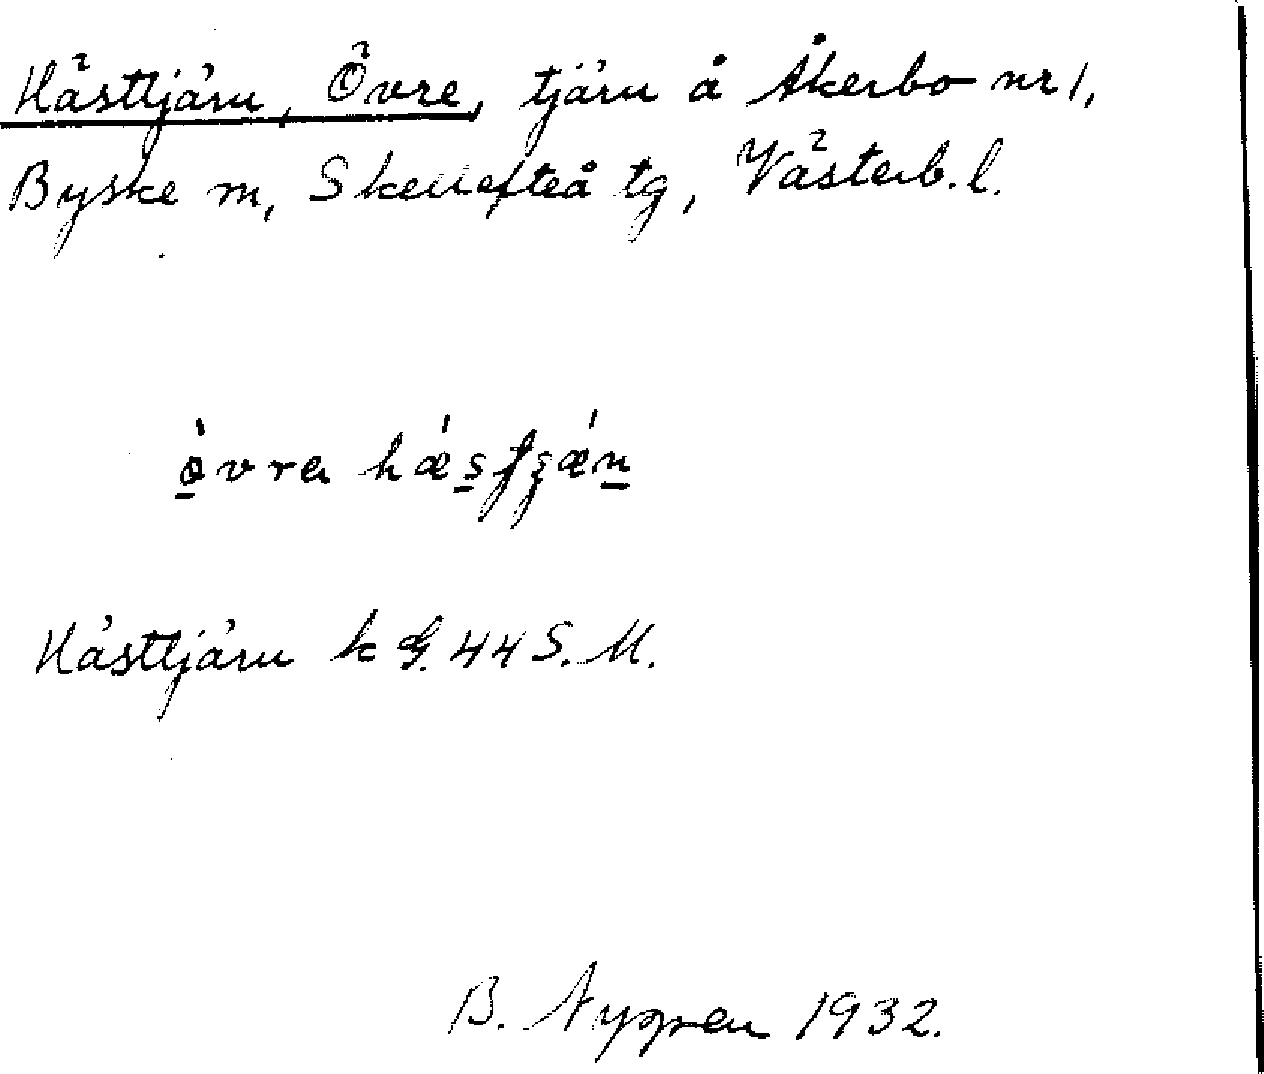 Hästtjärn, Övre, tjärn å Åkerbo nr 1,
Byske m, Skellefteå tg, Västerb. l.
Hästtjärn k G. 44 S. M.
B. Nygren 1932.